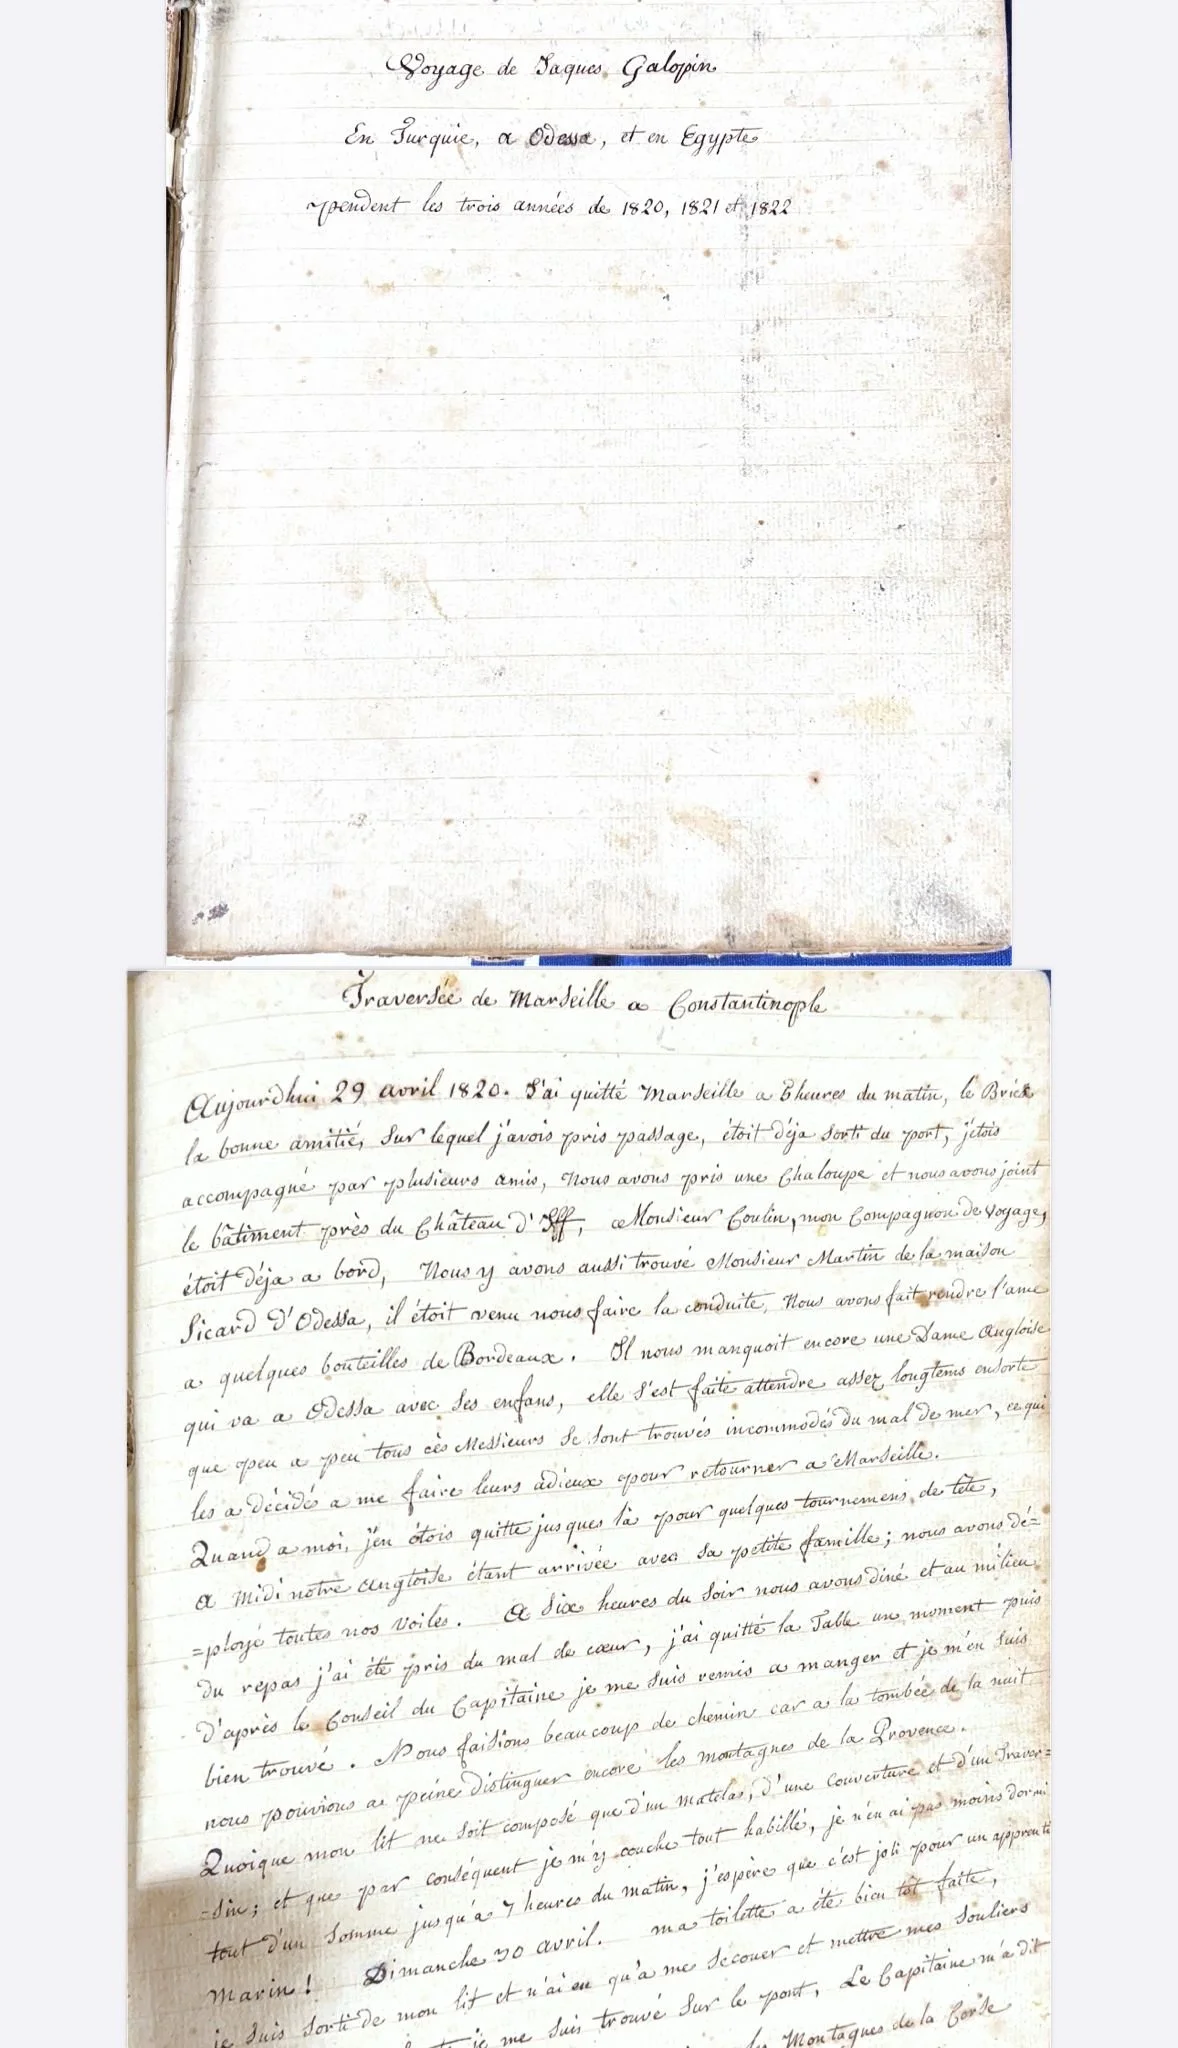 Voyage de Jaques Galopin
En Turquie, a Odessa, et en Egypte
pendent les trois années de 1820, 1821 et 1822
Traversée de Marseille a Constantinople
Aujourdhui 29 avril 1820. J'ai quitté Marseille a 6 heures du matin, le Brick
la bonne amitié, sur lequel j'avois pris passage, étoit déja sorti du port, j'étois
accompagné par plusieurs amis, Nous avons pris une Chaloupe et nous avons joint
le bâtiment près du Château d'Iff, Monsieur Coulin, mon Compagnon de voyage,
étoit déja a bord, Nous y avons aussi trouvé Monsieur Martin de la maison
Sicard d'Odessa, il étoit venu nous faire la conduite, Nous avons fait rendre l'ame
a quelques bouteilles de Bordeaux. Il nous manquoit encore une Dame Angloise
qui va a Odessa avec ses enfans, elle s'est faite attendre assez longtems ensorte
que peu a peu tous ces Messieurs se sont trouvés incommodés du mal de mer, ce qui
les a décidés a me faire leurs adieux pour retourner a Marseille.
Quand a moi, j'en étois quitte jusques là pour quelques tournemens de tête,
A Midi notre Angloise étant arrivée avec sa petite famille; nous avons dé=
=ployé toutes nos Voiles. A six heures du soir nous avons diné et au milieu
du repas j'ai été pris du mal de cœur, j'ai quitté la Table un moment puis
d'après le Conseil du Capitaine je me suis remis a manger et je m'en suis
bien trouvé. Nous faisions beaucoup de chemin car a la tombée de la nuit
nous pouvions a peine distinguer encore les montagnes de la Provence.
Quoique mon lit ne soit composé que d'un matelas, d'une couverture et d'un Traver=
=sin; et que par conséquent je m'y couche tout habillé, je n'en ai pas moins dormi
tout d'un somme jusqu'a 7 heures du matin, j'espère que c'est joli pour un apprenti
Marin! Dimanche 30 avril. ma toilette a été bien tôt faite,
je suis sorti de mon lit et n'ai eu qu'à me secouer et mettre mes souliers
je me suis trouvé sur le pont, Le Capitaine m'a dit
Montagnes de la Corse